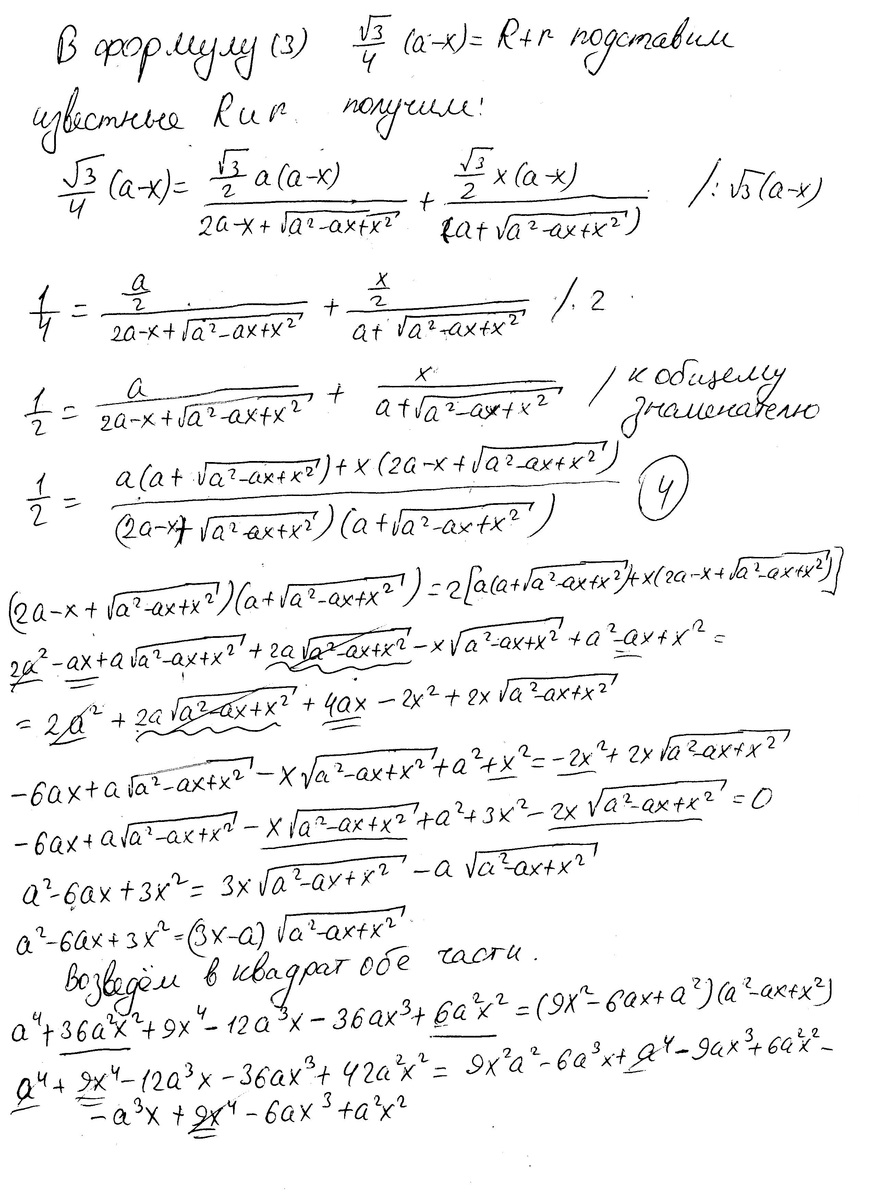 В формулу (3) √3/4 (a-x) = R+r подставим
известные R и r. получим:
√3/4 (a-x) = (√3/2 a(a-x))/(2a-x+√(a²-ax+x²)) + (√3/2 x(a-x))/(a+√(a²-ax+x²)) /: √3(a-x)
1/4 = (a/2)/(2a-x+√(a²-ax+x²)) + (x/2)/(a+√(a²-ax+x²)) /. 2
1/2 = a/(2a-x+√(a²-ax+x²)) + x/(a+√(a²-ax+x²)) / к общему знаменателю
1/2 = (a(a+√(a²-ax+x²))+x(2a-x+√(a²-ax+x²)))/((2a-x+√(a²-ax+x²))(a+√(a²-ax+x²))) (4)
(2a-x+√(a²-ax+x²))(a+√(a²-ax+x²)) = 2[a(a+√(a²-ax+x²))+x(2a-x+√(a²-ax+x²))]
2a²-ax+a√(a²-ax+x²)+2a√(a²-ax+x²)-x√(a²-ax+x²)+a²-ax+x² =
= 2a²+2a√(a²-ax+x²)+4ax-2x²+2x√(a²-ax+x²)
-6ax+a√(a²-ax+x²)-x√(a²-ax+x²)+a²+x² = -2x²+2x√(a²-ax+x²)
-6ax+a√(a²-ax+x²)-x√(a²-ax+x²)+a²+3x²-2x√(a²-ax+x²) = 0
a²-6ax+3x² = 3x√(a²-ax+x²)-a√(a²-ax+x²)
a²-6ax+3x² = (3x-a)√(a²-ax+x²)
Возведём в квадрат обе части.
a⁴+36a²x²+9x⁴-12a³x-36ax³+6a²x² = (9x²-6ax+a²)(a²-ax+x²)
a⁴+9x⁴-12a³x-36ax³+42a²x² = 9x²a²-6a³x+a⁴-9ax³+6a²x²-
-a³x+9x⁴-6ax³+a²x²